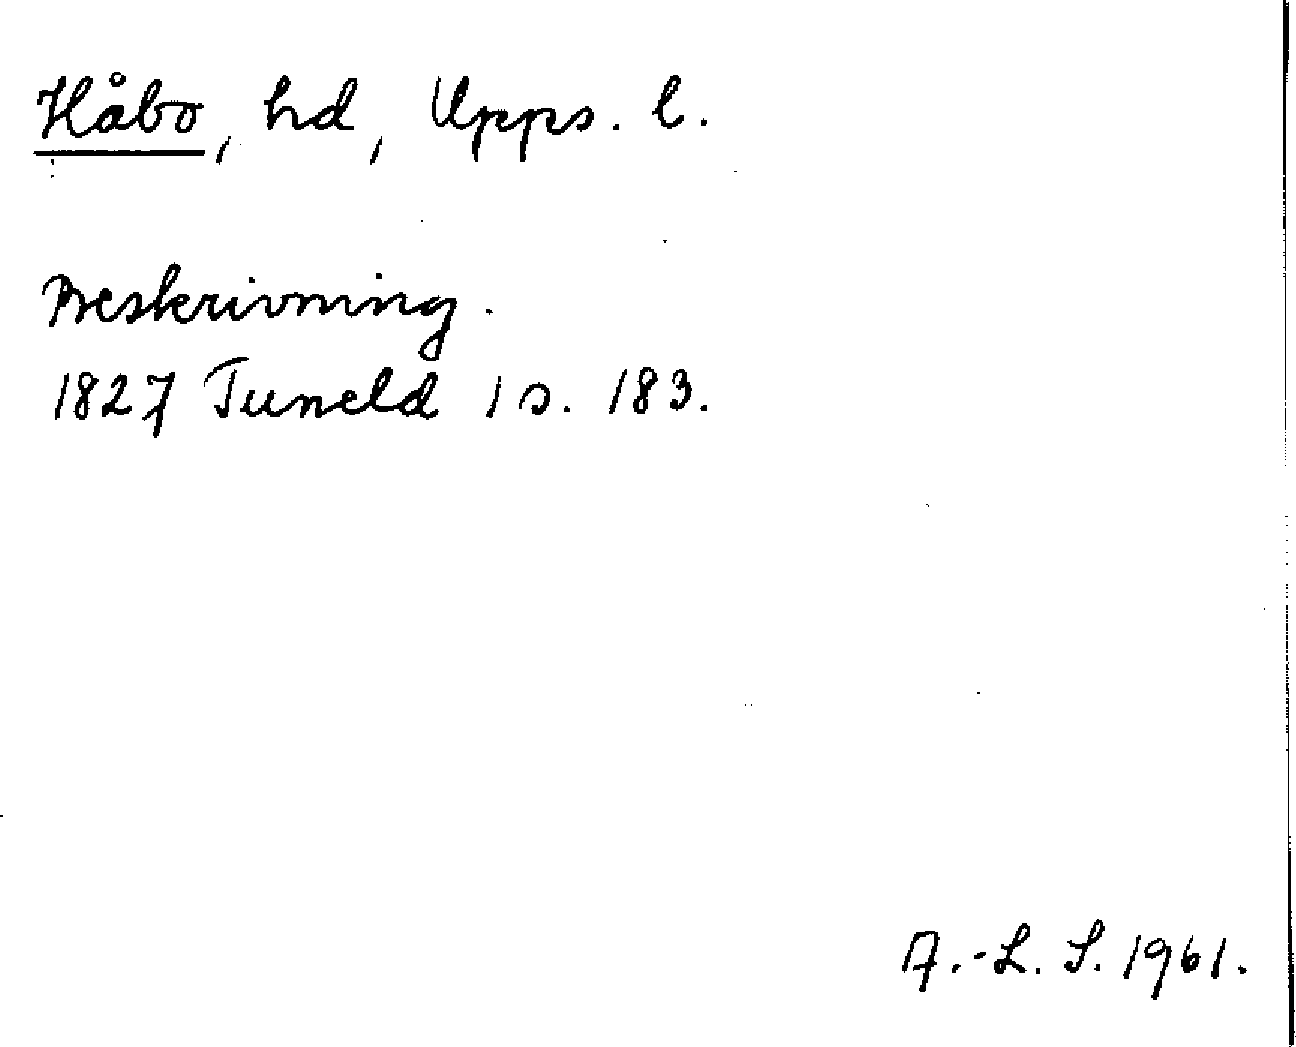 Håbo, hd, Upps. l.
Beskrivning.
1827 Tuneld 1 s. 183.
A.-L. S. 1961.